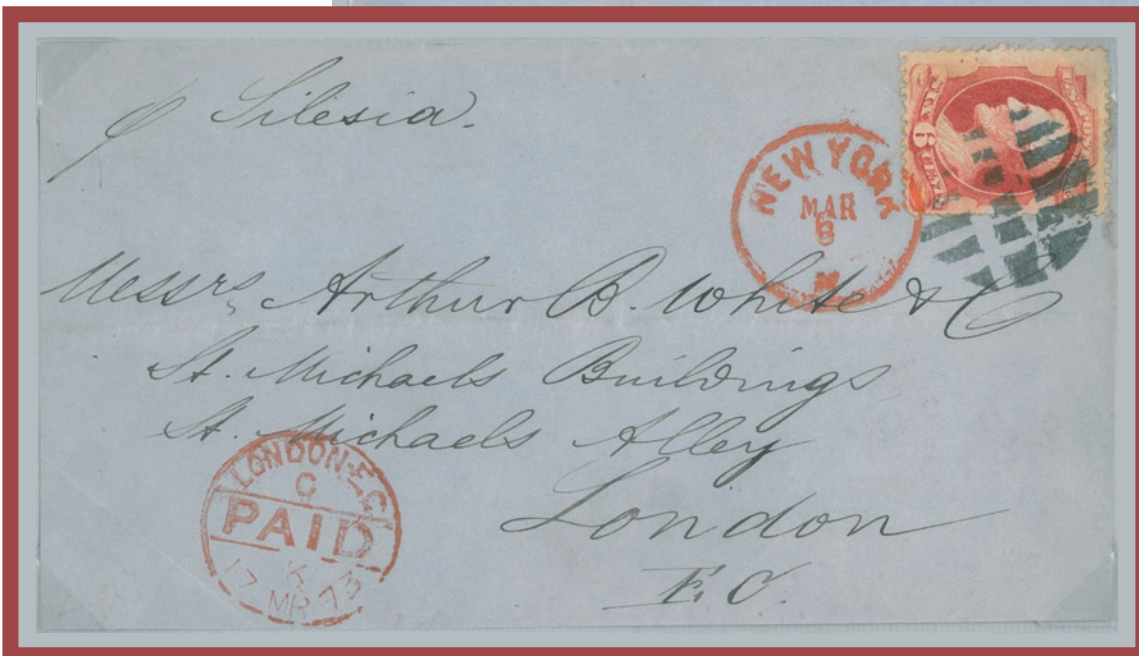 p Silesia.
NEW YORK
MAR
6
Messrs, Arthur B. White & C
St. Michaels Buildings
St. Michaels Alley
London
E.C.
LONDON-E.C
C
PAID
K
17 MR 73
6